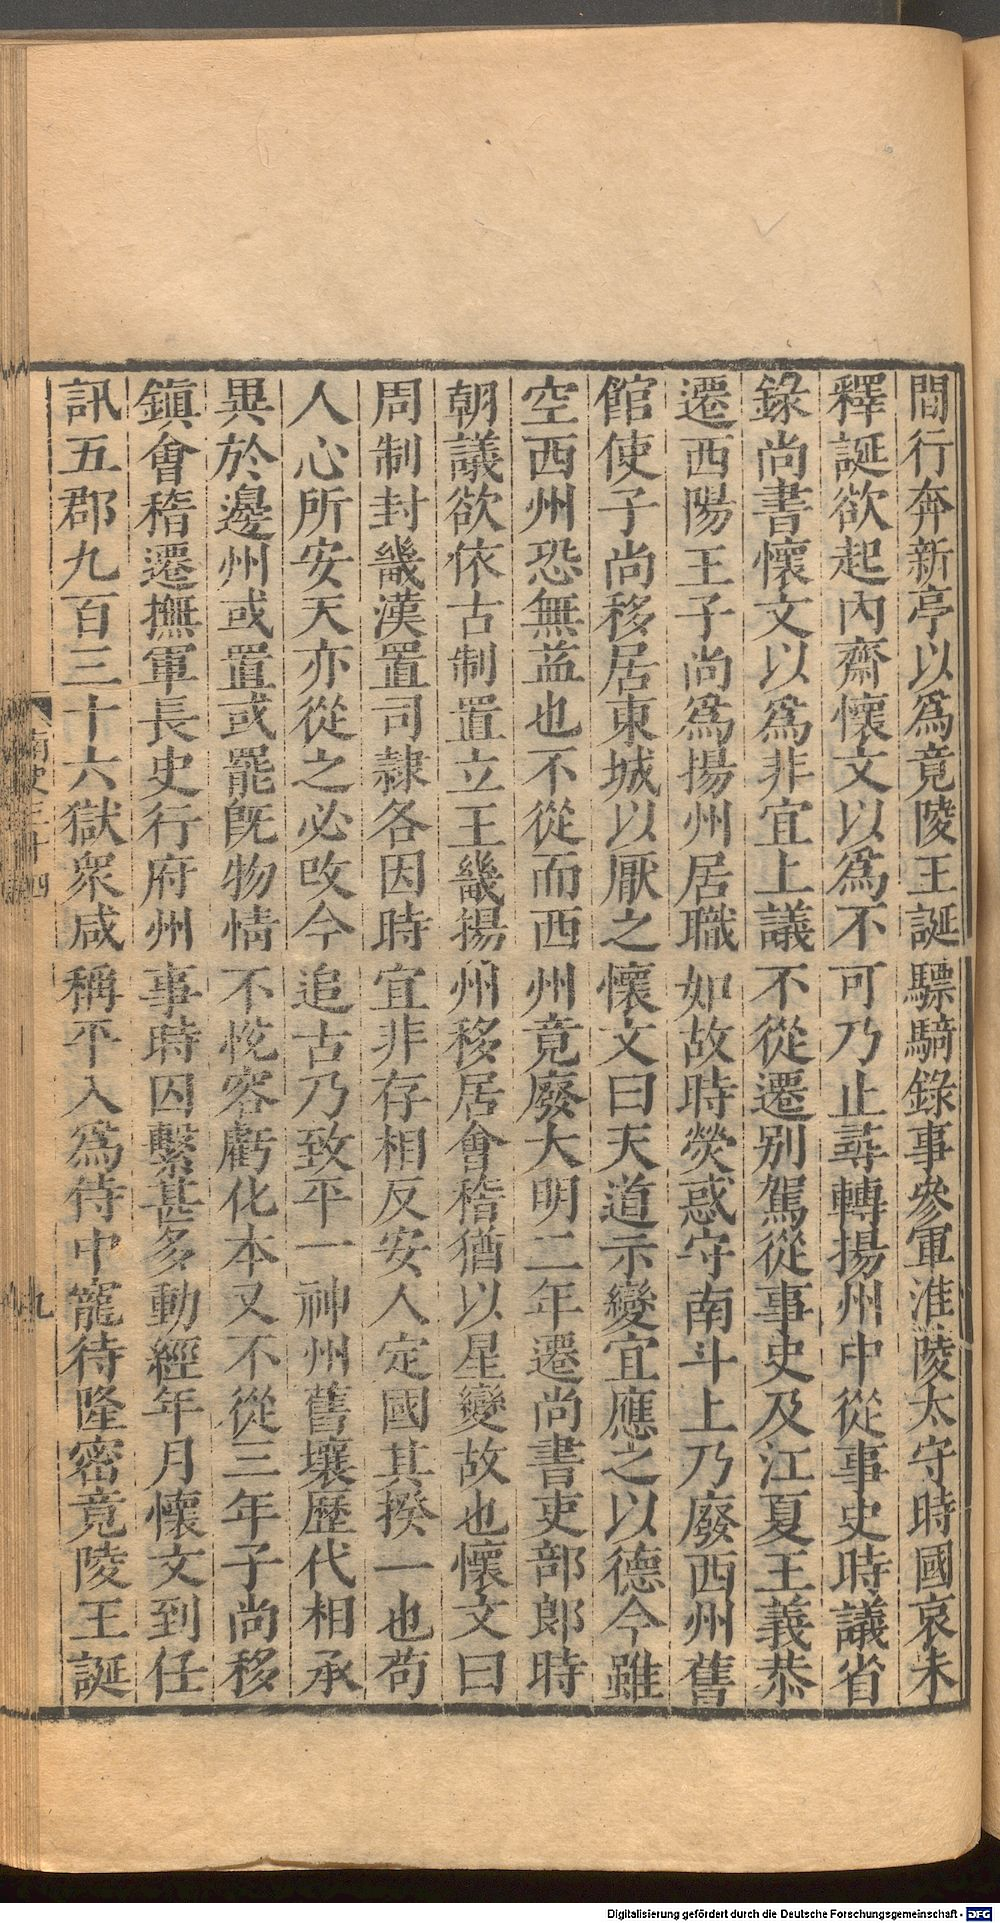 間行奔新亭以爲竟陵王誕驃騎錄事參軍淮陵太守時國哀未
釋誕欲起內齋懷文以爲不可乃止尋轉揚州中從事史時議省
錄尚書懷文以爲非宜上議不從遷别駕從事史及江夏王義恭
遷西陽王子尚爲揚州居職如故時熒惑守南斗上乃廢西州舊
館使子尚移居東城以厭之懷文曰天道示變宜應之以德今雖
空西州恐無益也不從而西州竟廢大明二年遷尚書吏部郎時
朝議欲依古制置立王畿揚州移居會稽猶以星變故也懷文曰
周制封畿漢置司隸各因時宜非存相反安人定國其揆一也苟
人心所安天亦從之必改今追古乃致平一神州舊壤歷代相承
異於邊州或置或罷旣物情不悅容虧化本又不從三年子尚移
鎮會稽遷撫軍長史行府州事時囚繫甚多動經年月懷文到任
訊五郡九百三十六獄衆咸稱平入爲侍中寵待隆密竟陵王誕
南史三十四
九
Digitalisierung gefördert durch die Deutsche Forschungsgemeinschaft - DFG